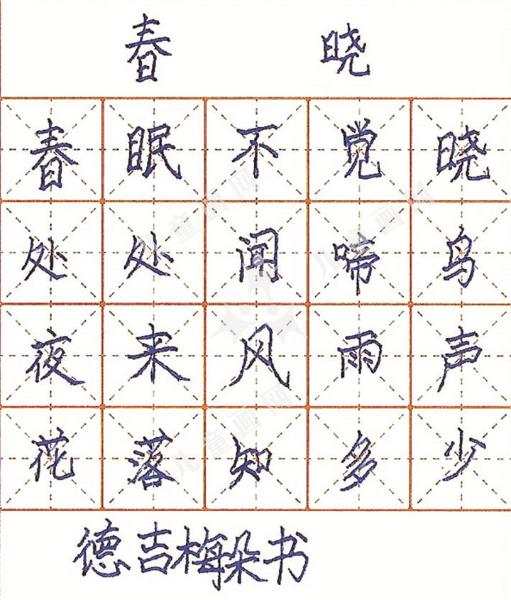 春 晓
春眠不觉晓
处处闻啼鸟
夜来风雨声
花落知多少
德吉梅朵书